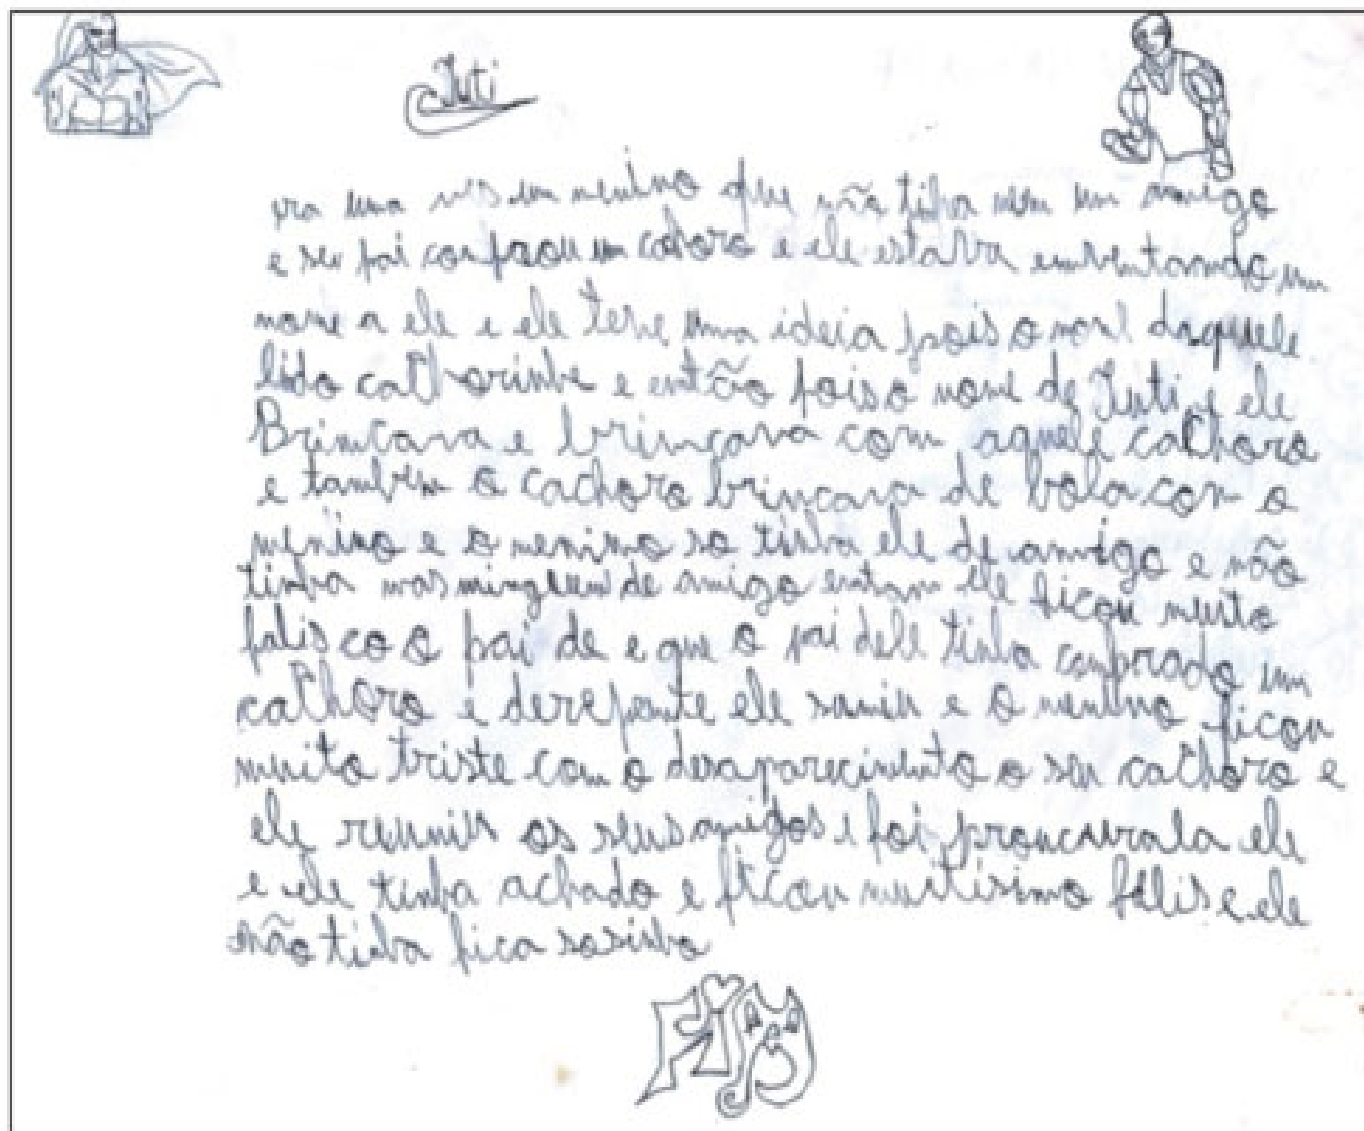 Tuti
era uma ves um menino que não tiha nem um amigo
e seu pai conprou um cahoro e ele estava enventando um
nome a ele e ele teve uma ideia pois o nome daquele
lido cathorinho e então pois o nome de Tuti e ele
Brincava e brincava com aquele cathoro
e também o cachoro brincava de bola com o
menino e o menino so tinha ele de amigo e não
tinha mas ninguem de amigo entam ele ficou muito
felis co o pai de e que o pai dele tinha comprado um
cathoro e derepente ele sumiu e o menino ficou
muito triste com o desaparecimento o seu cathoro e
ele reuniu os seus amigos e foi prouncurala ele
e ele tinha achado e ficou muitisimo felis e ele
não tinha fica sosinho
FiM